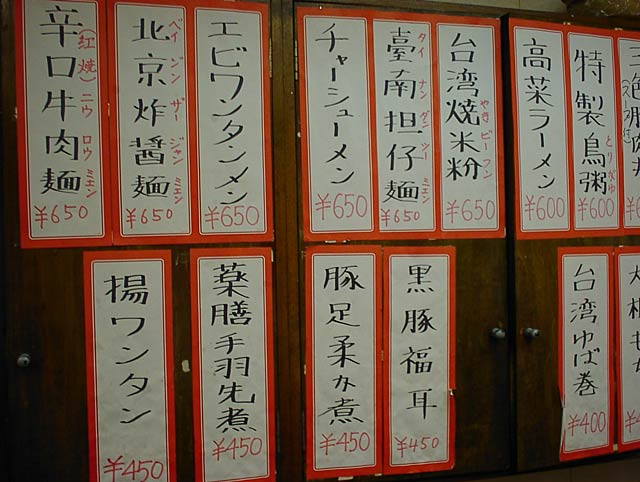 特製鳥粥
とりがゆ
¥600
高菜ラーメン
¥600
台湾焼米粉
やきビーフン
¥650
臺南担仔麺
タイナンダンツーミエン
¥650
チャーシューメン
¥650
エビワンタンメン
¥650
北京炸醤麺
ペイジンザージャンミエン
¥650
辛口牛肉麺
(紅焼)ニウロウミエン
¥650
台湾ゆば巻
¥400
黒豚福耳
¥450
豚足柔か煮
¥450
薬膳手羽先煮
¥450
揚ワンタン
¥450